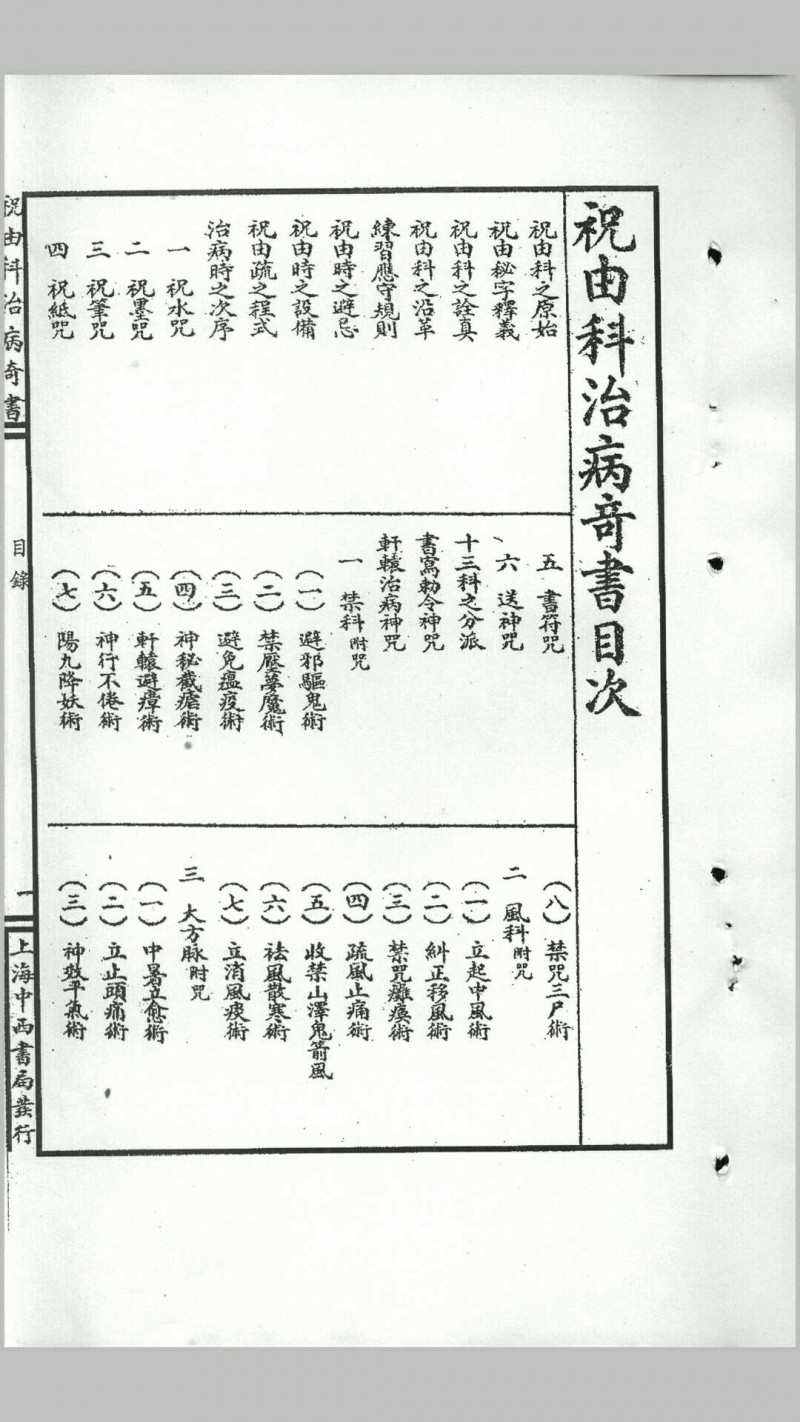 祝由科治病竒書目次
祝由科之原始
祝由秘字釋義
祝由科之詮真
祝由科之沿革
練習應守規則
祝由時之避忌
祝由時之設備
祝由疏之程式
治病時之次序
一 祝水咒
二 祝墨咒
三 祝筆咒
四 祝紙咒
五 書符咒
六 送神咒
十三科之分派
書寫勅令神咒
軒轅治病神咒
一 禁科附咒
(一) 避邪驅鬼術
(二) 禁壓夢魔術
(三) 避免瘟疫術
(四) 神秘截瘧術
(五) 軒轅避瘴術
(六) 神行不倦術
(七) 陽九降妖術
(八) 禁咒三尸術
二 風科附咒
(一) 立起中風術
(二) 糾正移風術
(三) 禁咒癱瘓術
(四) 疏風止痛術
(五) 收禁山澤鬼箭風
(六) 祛風散寒術
(七) 立消風痰術
三 大方脉附咒
(一) 中暑立愈術
(二) 立止頭痛術
(三) 神效平氣術
祝由科治病竒書
目錄
一
上海中西書局發行